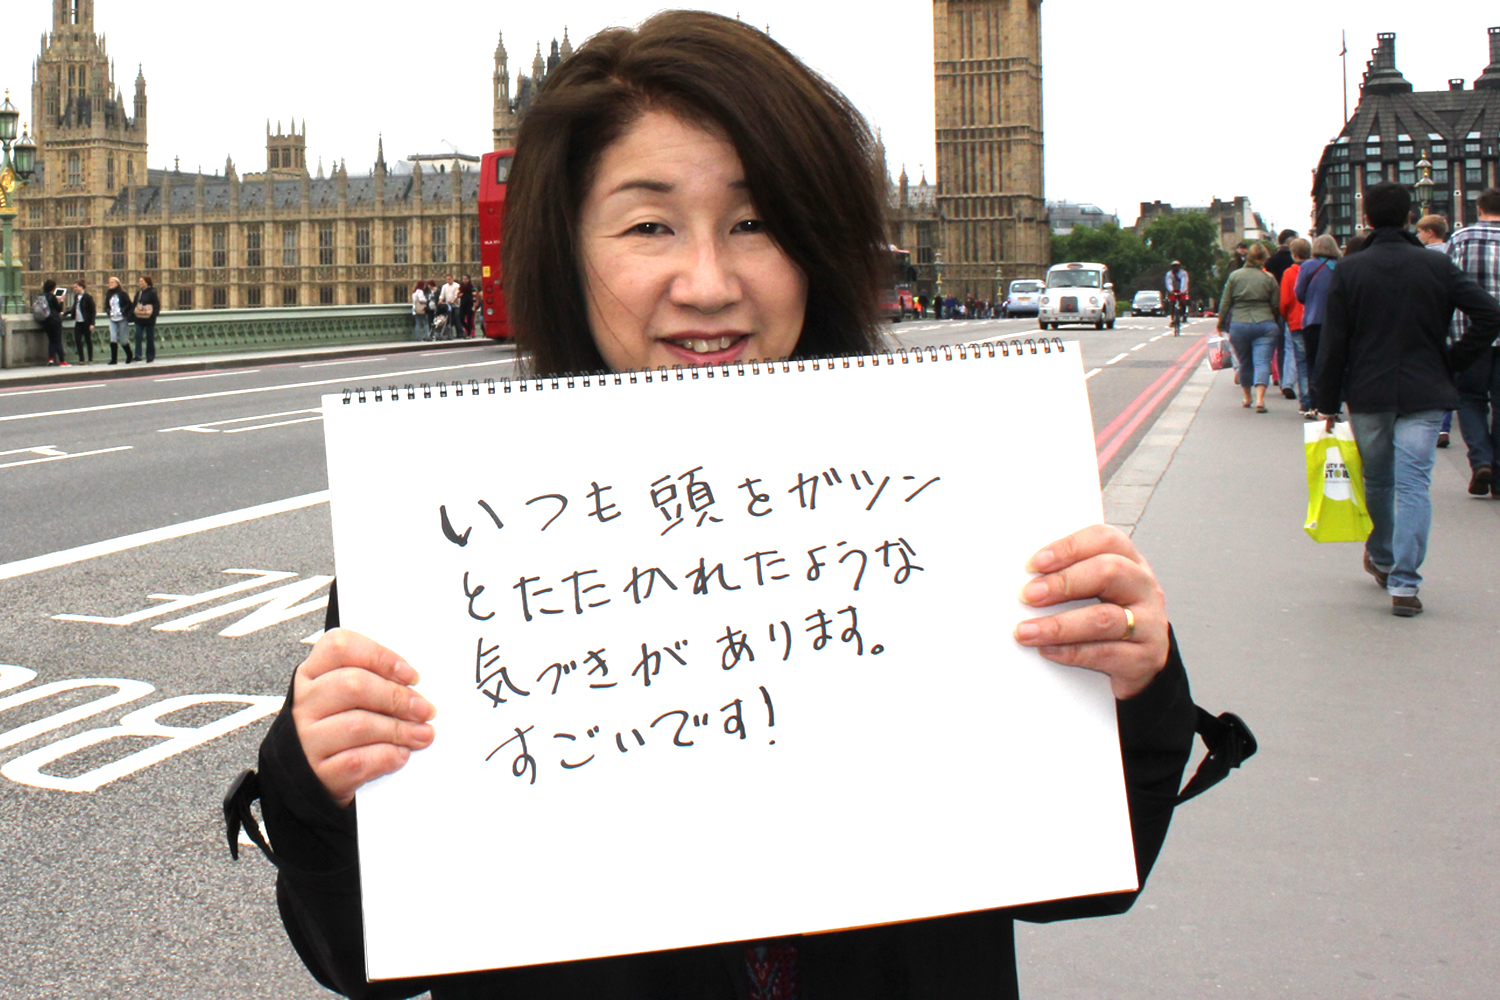 いつも頭をガツン
とたたかれたような
気づきがあります。
すごいです!
BUS